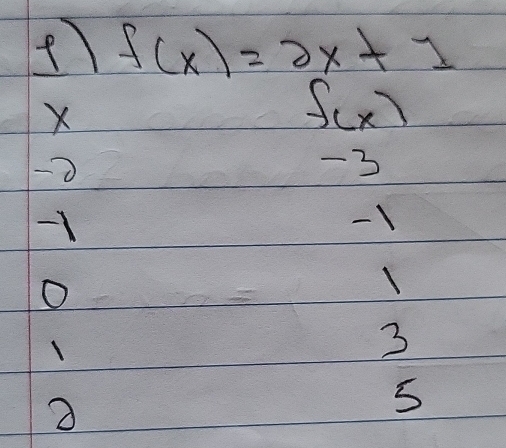 1) f(x) = 2x + 1
x f(x)
-2 -3
-1 -1
0 1
1 3
2 5